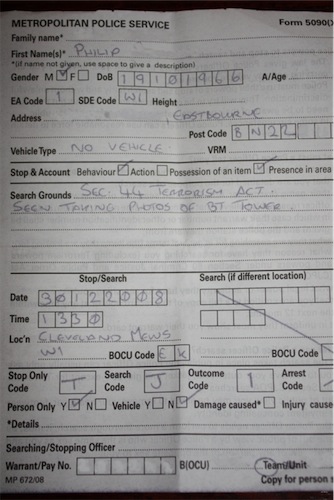 METROPOLITAN POLICE SERVICE Form 5090(
Family name*
First Name(s)* PHILIP
*(if name not given, use space to give a description)
Gender M F DoB 19101966 A/Age
EA Code 1 SDE Code W1 Height
Address EASTBOURNE
Post Code BN22
Vehicle Type NO VEHICLE VRM
Stop & Account Behaviour Action Possession of an item Presence in area
Search Grounds SEC. 44 TERRORISM ACT.
SEEN TAKING PHOTOS OF BT TOWER.
Stop/Search Search (if different location)
Date 30122008
Time 1330
Loc'n CLEVELAND MEWS
W1 BOCU Code EK BOCU Code
Stop Only Code T Search Code J Outcome Code 1 Arrest Code
Person Only Y N Vehicle Y N Damage caused* Injury cause
*Details
Searching/Stopping Officer
Warrant/Pay No. B(OCU) Team/Unit
MP 672/08 Copy for person